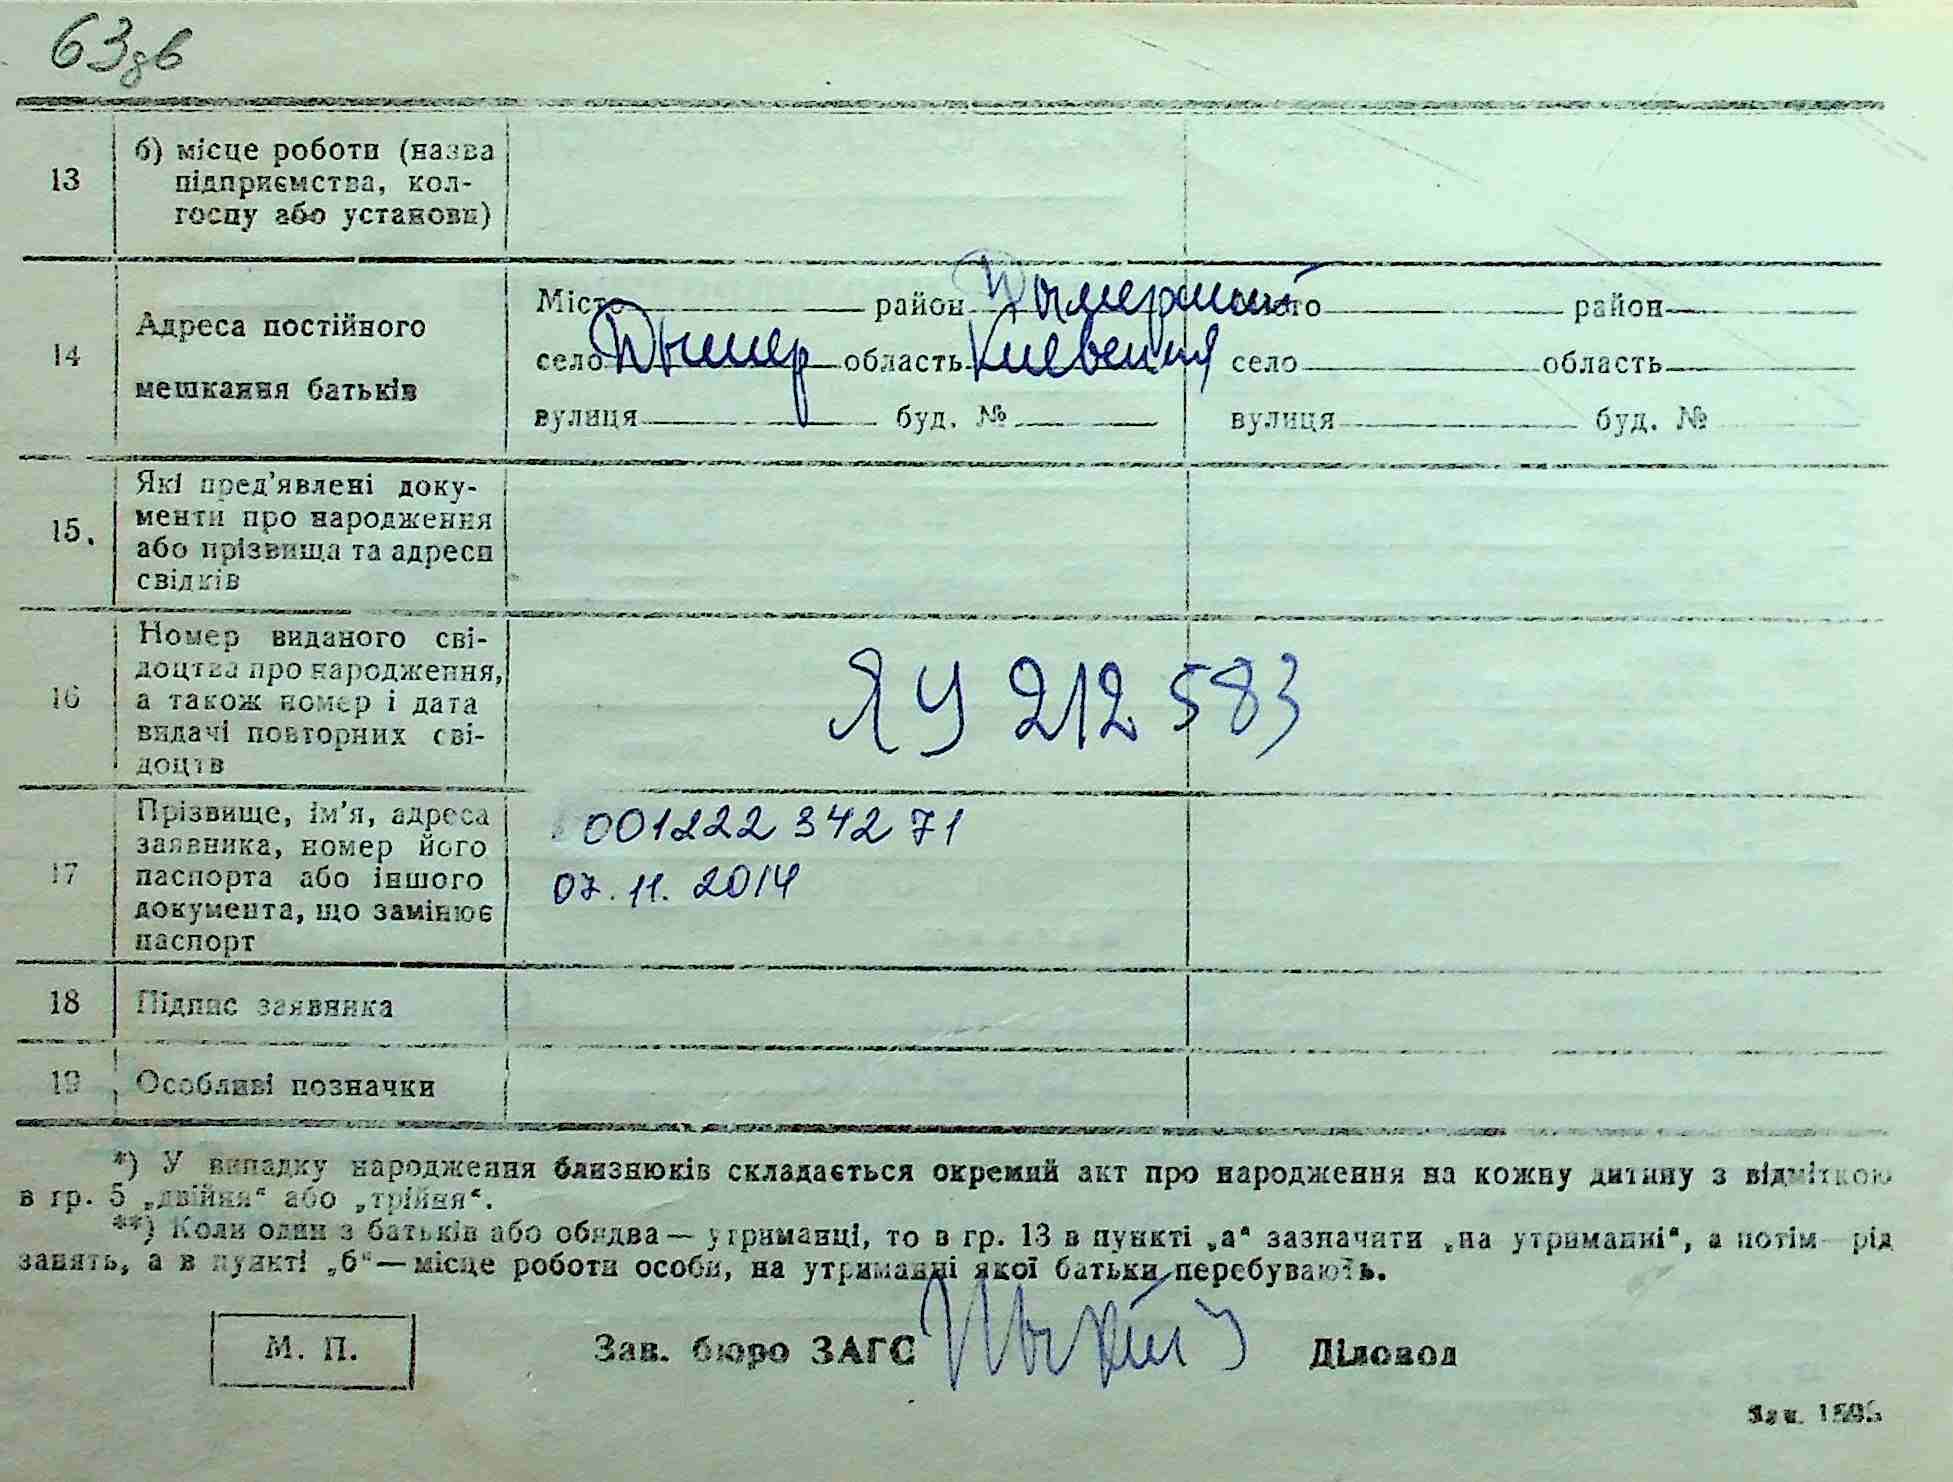 63зв
13 б) місце роботи (назва
підприємства, кол-
госпу або установи)
14 Адреса постійного
мешкання батьків
Місто район Дымерский
село Дымер область Киевская
вулиця буд. №
район
село область
вулиця буд. №
15. Які пред’явлені доку-
менти про народження
або прізвища та адреси
свідків
16 Номер виданого сві-
доцтва про народження,
а також номер і дата
видачі повторних сві-
доцтв
ЯУ 212583
17 Прізвище, ім’я, адреса
заявника, номер його
паспорта або іншого
документа, що замінює
паспорт
00122234271
07.11.2014
18 Підпис заявника
19 Особливі позначки
*) У випадку народження близнюків складається окремий акт про народження на кожну дитину з відміткою
в гр. 5 „двійня“ або „трійня“.
**) Коли один з батьків або обидва — утриманці, то в гр. 13 в пункті „а“ зазначити „на утриманні“, а потім — рід
занять, а в пункті „б“ — місце роботи особи, на утриманні якої батьки перебувають.
М. П. Зав. бюро ЗАГС Діловод
Зам. 1595